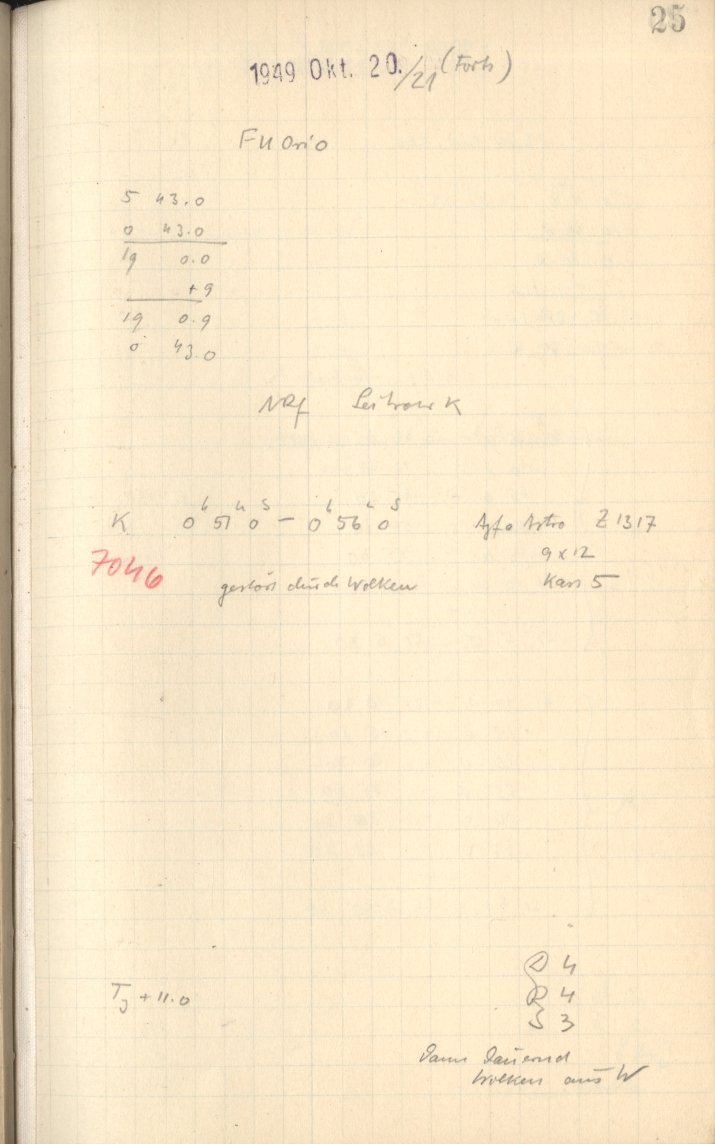 25
1949 Okt. 20./21 (Forts)
FU Orio
5 43.0
0 43.0
19 0.0
+9
19 0.9
0 43.0
NRf K
K 0h 51m 0s – 0h 56m 0s Agfa Astro Z 1317
7046 9x12
gestört durch Wolken Kass 5
D 4
TJ + 11.0 R 4
S 3
Dann dauernd
Wolken aus W